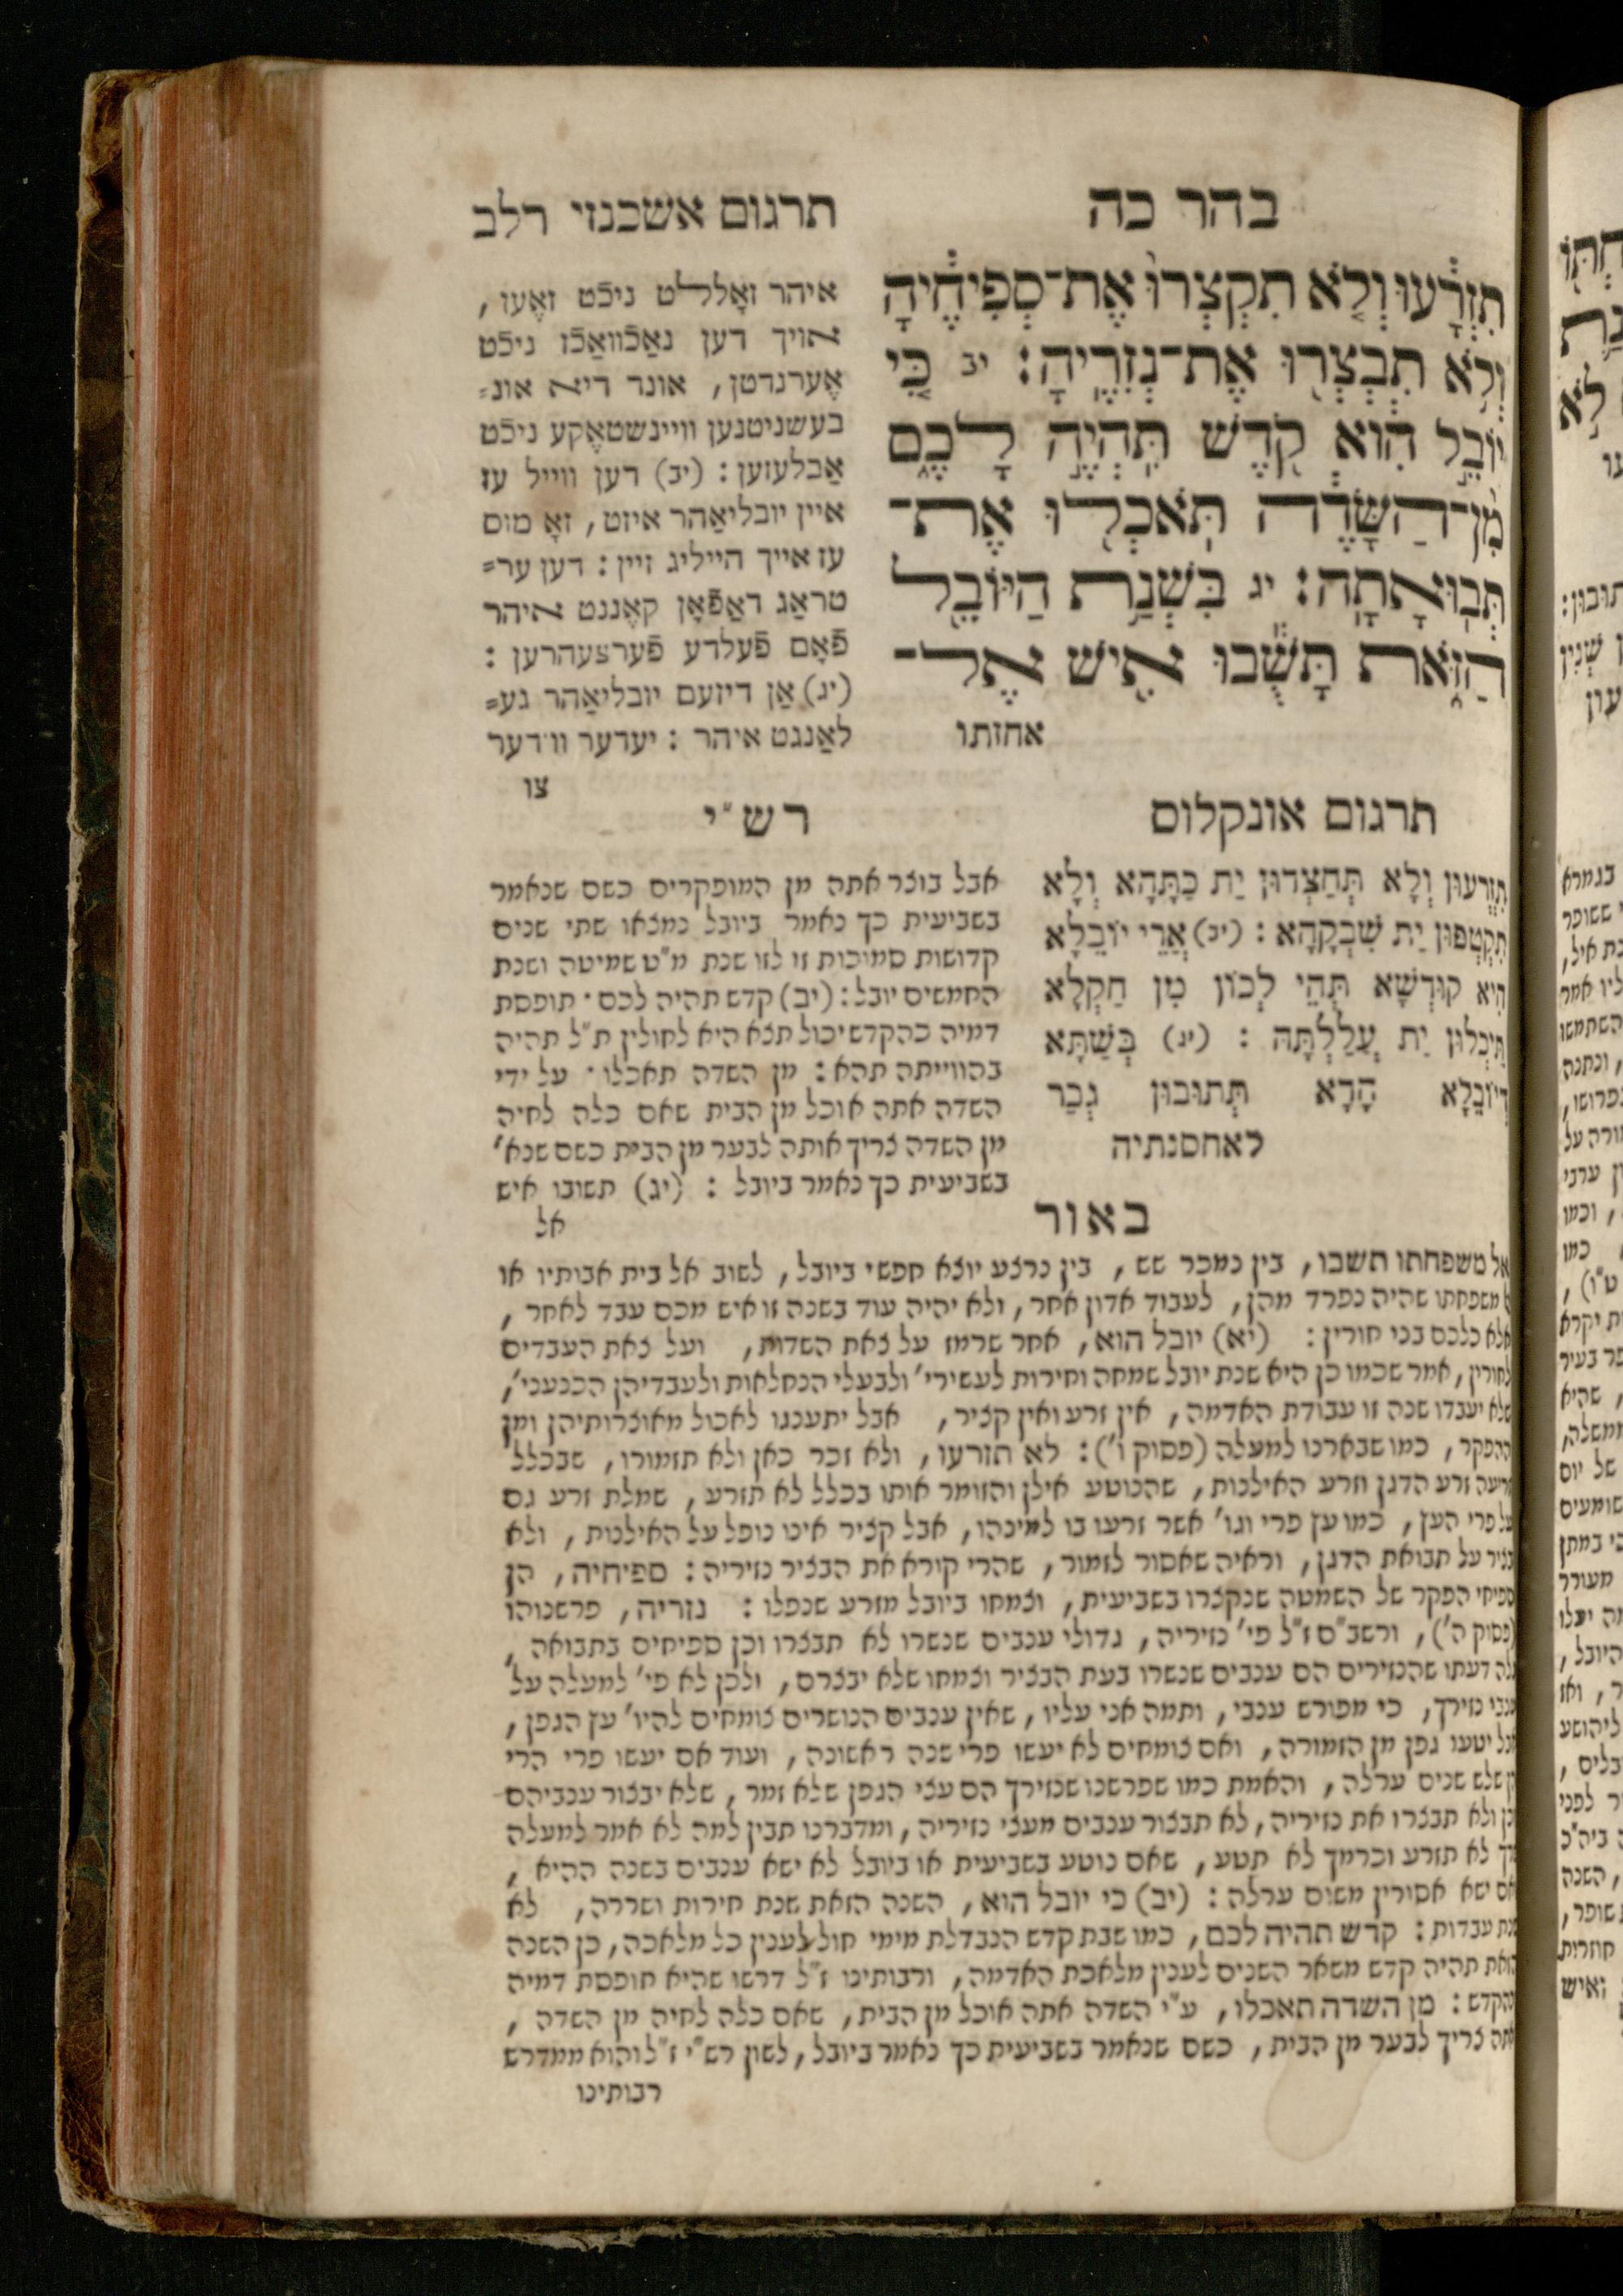 בהר כה
תִזְרָ֔עוּ וְלֹ֤א תִקְצְרוּ֙ אֶת־סְפִיחֶ֔יהָ
וְלֹ֥א תִבְצְר֖וּ אֶת־נְזִרֶֽיהָ׃ יב כִּ֚י
יוֹבֵ֣ל הִ֔וא קֹ֖דֶשׁ תִּהְיֶ֣ה לָכֶ֑ם
מִ֨ן־הַשָּׂדֶ֔ה תֹּאכְל֖וּ אֶת־
תְּבוּאָתָֽהּ׃ יג בִּשְׁנַ֥ת הַיּוֹבֵ֖ל
הַזֹּ֑את תָּשֻׁ֕בוּ אִ֖ישׁ אֶל־
אחזתו
תרגום אשכנזי רלב
איהר זאָללט ניכֿט זאֶען,
אויך דען נאַכֿוואַכֿז ניכֿט
אֶערנדטן, אונד דיא אונ=
בעשניטנען וויינשטאֶקע ניכֿט
אַבלעזען: (יב) דען ווייל עז
איין יובליאַהר איזט, זאָ מוס
עז אייך הייליג זיין: דען ער=
טראַג דאַפֿאָן קאֶננט איהר
פֿאָם פֿעלדע פֿערצעהרען:
(יג) אַן דיזעם יובליאַהר גע=
לאַנגט איהר: יעדער ווידער
צו
תרגום אונקלוס
תִזְרְעוּן וְלָא תְּחַצְדוּן יַת כַּתָּהָא וְלָא
תִקְטְפוּן יַת שִׁבְקָהָא: (יב) אֲרֵי יוֹבֵלָא
הִיא קוּדְשָׁא תְּהֵי לְכוֹן מִן חַקְלָא
תֵּיכְלוּן יַת עֲלַלְתָּהּ: (יג) בְּשַׁתָּא
דְיוֹבֵלָא הָדָא תְּתוּבוּן גְּבַר
לאחסנתיה
רש״י
אבל בוצר אתה מן המופקרים כשם שנאמר
בשביעית כך נאמר ביובל נמצאו שתי שנים
קדושות סמוכות זו לזו שנת מ״ט שמיטה ושנת
החמשים יובל: (יב) קדש תהיה לכם · תופסת
דמיה כהקדש יכול תצא היא לחולין ת״ל תהיה
בהווייתה תהא: מן השדה תאכלו · על ידי
השדה אתה אוכל מן הבית שאם כלה לחיה
מן השדה צריך אותה לבער מן הבית כשם שנא׳
בשביעית כך נאמר ביובל: (יג) תשובו איש
אל
באור
אל משפחתו תשבו, בין נמכר שש, בין נרצע יוצא חפשי ביובל, לשוב אל בית אבותיו או
משפחתו שהיה נפרד מהן, לעבוד אדון אחר, ולא יהיה עוד בשנה זו איש מכם עבד לאחר,
אלא כלכם בני חורין: (יא) יובל הוא, אחר שרמז על צאת השדות, ועל צאת העבדים
לחורין, אמר שכמו כן היא שנת יובל שמחה וחירות לעשירי׳ ולבעלי הנחלאות ולעבדיהן הכנעני׳,
שלא יעבדו שנה זו עבודת האדמה, אין זרע ואין קציר, אבל יתענגו לאכול מאוצרותיהן ומן
ההפקר, כמו שבארנו למעלה (פסוק ו׳): לא תזרעו, ולא זכר כאן ולא תזמורו, שבכלל
זרע הדגן וזרע האילנות, שהנוטע אילן והזומר אותו בכלל לא תזרע, שמלת זרע גם
על פרי העץ, כמו עץ פרי וגו׳ אשר זרעו בו למינהו, אבל קציר אינו נופל על האילנות, ולא
בציר על תבואת הדגן, וראיה שאסור לזמור, שהרי קורא את הבציר נזיריה: ספיחיה, הן
ספיחי הפקר של השמטה שנקצרו בשביעית, וצמחו ביובל מזרע שנפלו: נזריה, פרשנוהו
(פסוק ה׳), ורשב״ם ז״ל פי׳ נזיריה, גדולי ענבים שנשרו לא תבצרו וכן ספיחים בתבואה,
דעתו שהנזירים הם ענבים שנשרו בעת הבציר וצמחו שלא יבצרם, ולכן לא פי׳ למעלה על
ענבי נזירך, כי מפורש ענבי, ותמה אני עליו, שאין ענבים הנושרים צומחים להיו׳ עץ הגפן,
אבל יטעו גפן מן הזמורה, ואם צומחים לא יעשו פרי שנה ראשונה, ועוד אם יעשו פרי הרי
הן שלש שנים ערלה, והאמת כמו שפרשנו שנזירך הם עצי הגפן שלא זמר, שלא יבצור ענביהם
וכן ולא תבצרו את נזיריה, לא תבצור ענבים מעצי נזיריה, ומדברנו תבין למה לא אמר למעלה
שדך לא תזרע וכרמך לא תטע, שאם נוטע בשביעית או ביובל לא ישא ענבים בשנה ההיא,
ואם ישא אסורין משום ערלה: (יב) כי יובל הוא, השנה הזאת שנת חירות ושררה, לא
שנת עבדות: קדש תהיה לכם, כמו שבת קדש הנבדלת מימי חול לענין כל מלאכה, כן השנה
הזאת תהיה קדש משאר השנים לענין מלאכת האדמה, ורבותינו ז״ל דרשו שהיא תופסת דמיה
כהקדש: מן השדה תאכלו, ע״י השדה אתה אוכל מן הבית, שאם כלה לחיה מן השדה,
אתה צריך לבער מן הבית, כשם שנאמר בשביעית כך נאמר ביובל, לשון רש״י ז״ל והוא ממדרש
רבותינו